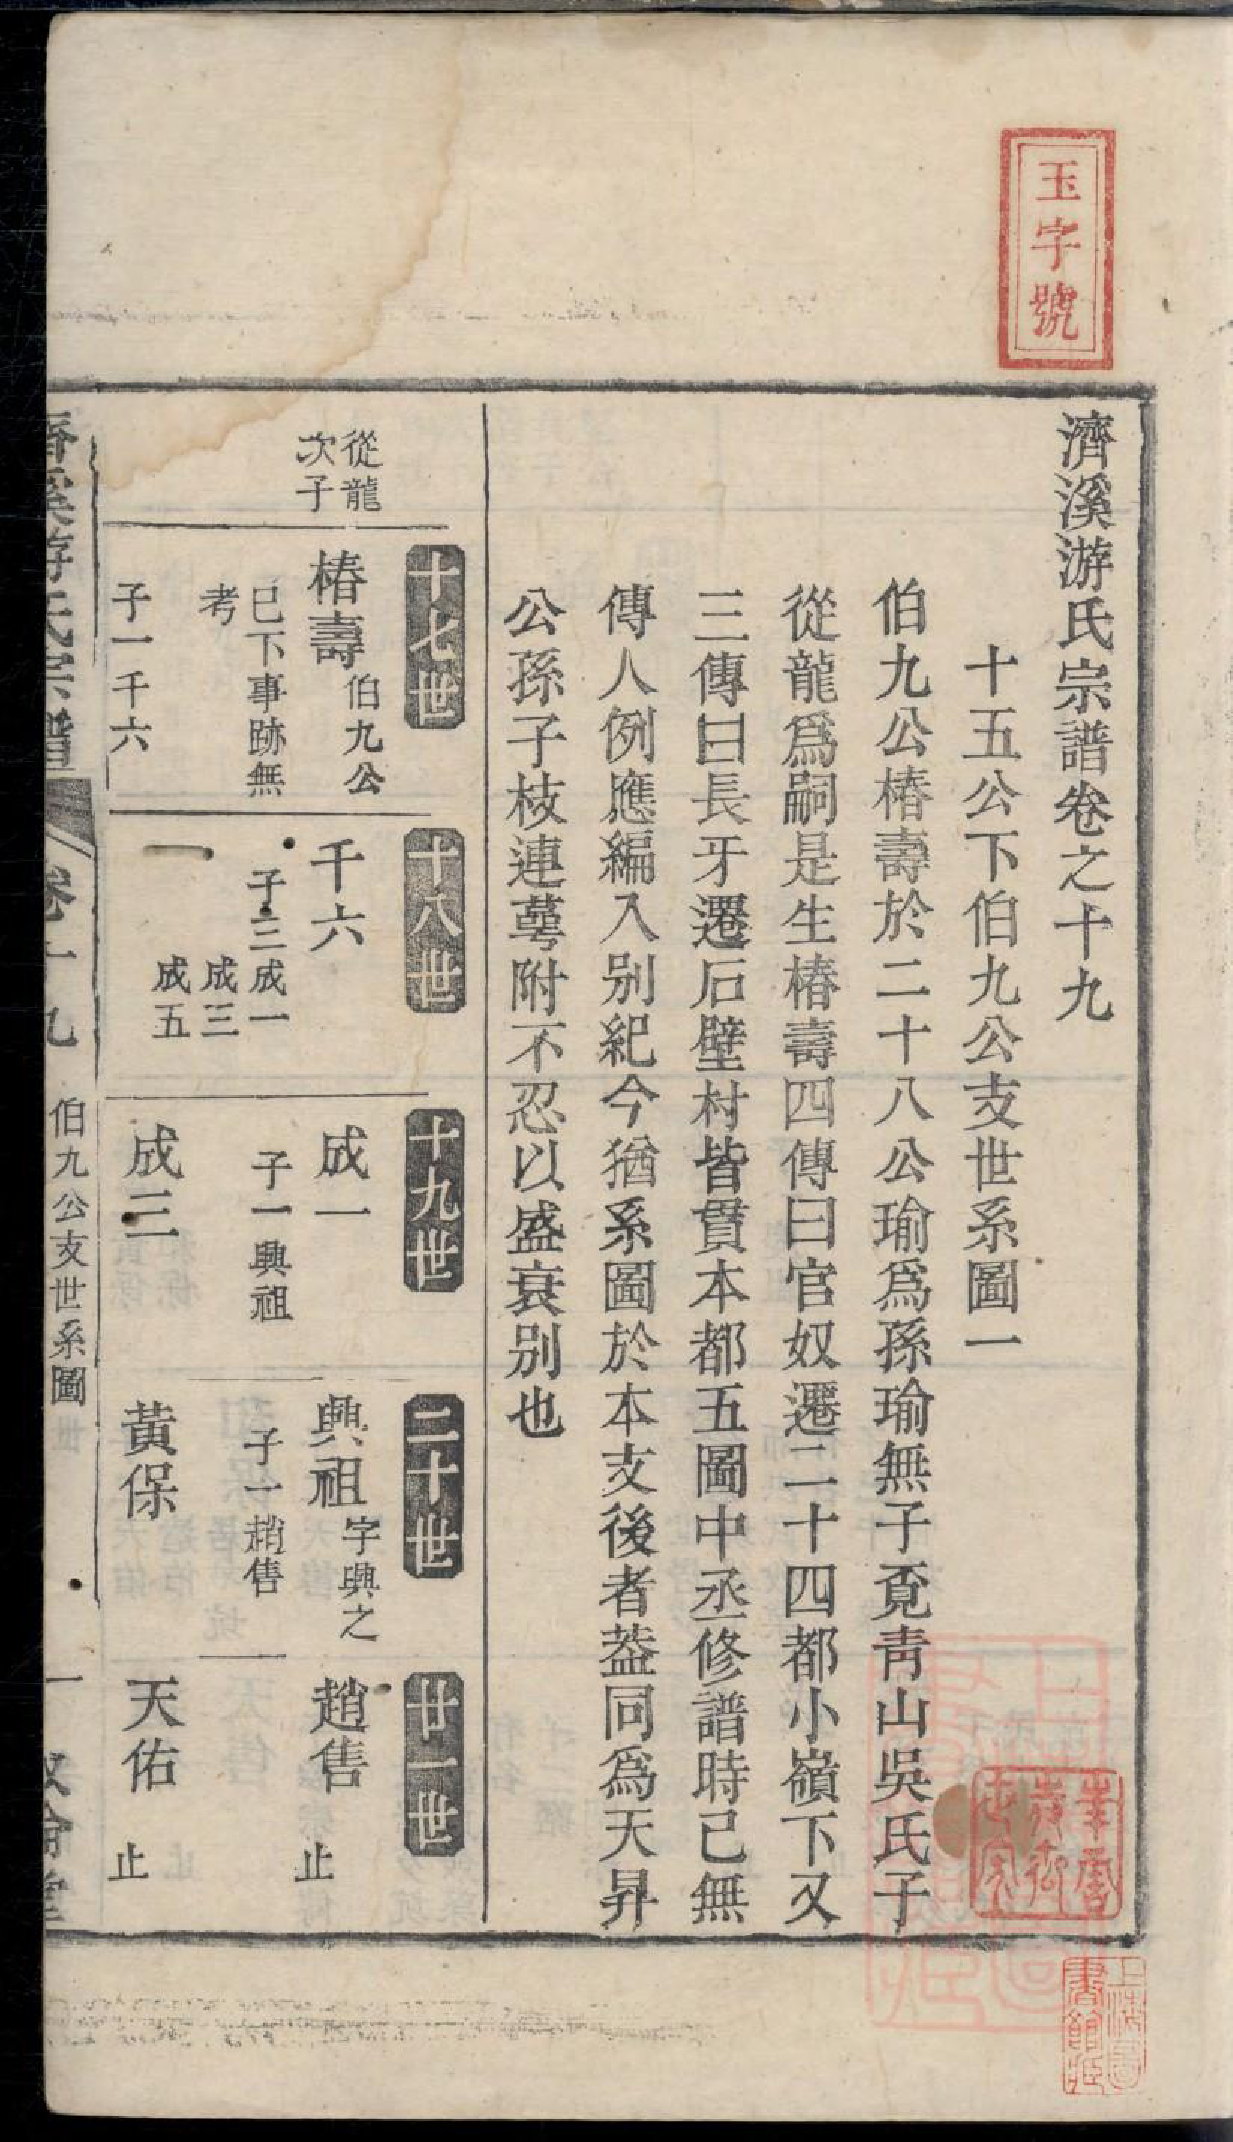 玉字號
濟溪游氏宗譜卷之十九
十五公下伯九公支世系圖一
伯九公椿壽於二十八公瑜爲孫瑜無子覔靑山吳氏子
從龍爲嗣是生椿壽四傳曰官奴遷二十四都小嶺下又
三傳曰長牙遷石壁村皆貫本都五圖中丞修譜時已無
傳人例應編入别紀今猶系圖於本支後者葢同爲天昇
公孫子枝連蕚附不忍以盛衰别也
從龍
次子
十七世
椿壽
伯九公
已下事跡無
考
子一千六
十八世
千六
子三成一
成三
成五
十九世
成一
子一興祖
成三
二十世
興祖
字興之
子一趙售
黃保
廿一世
趙售
止
天佑
止
濟溪游氏宗譜
卷十九
伯九公支世系圖
一
敘倫堂
上海圖
書館藏